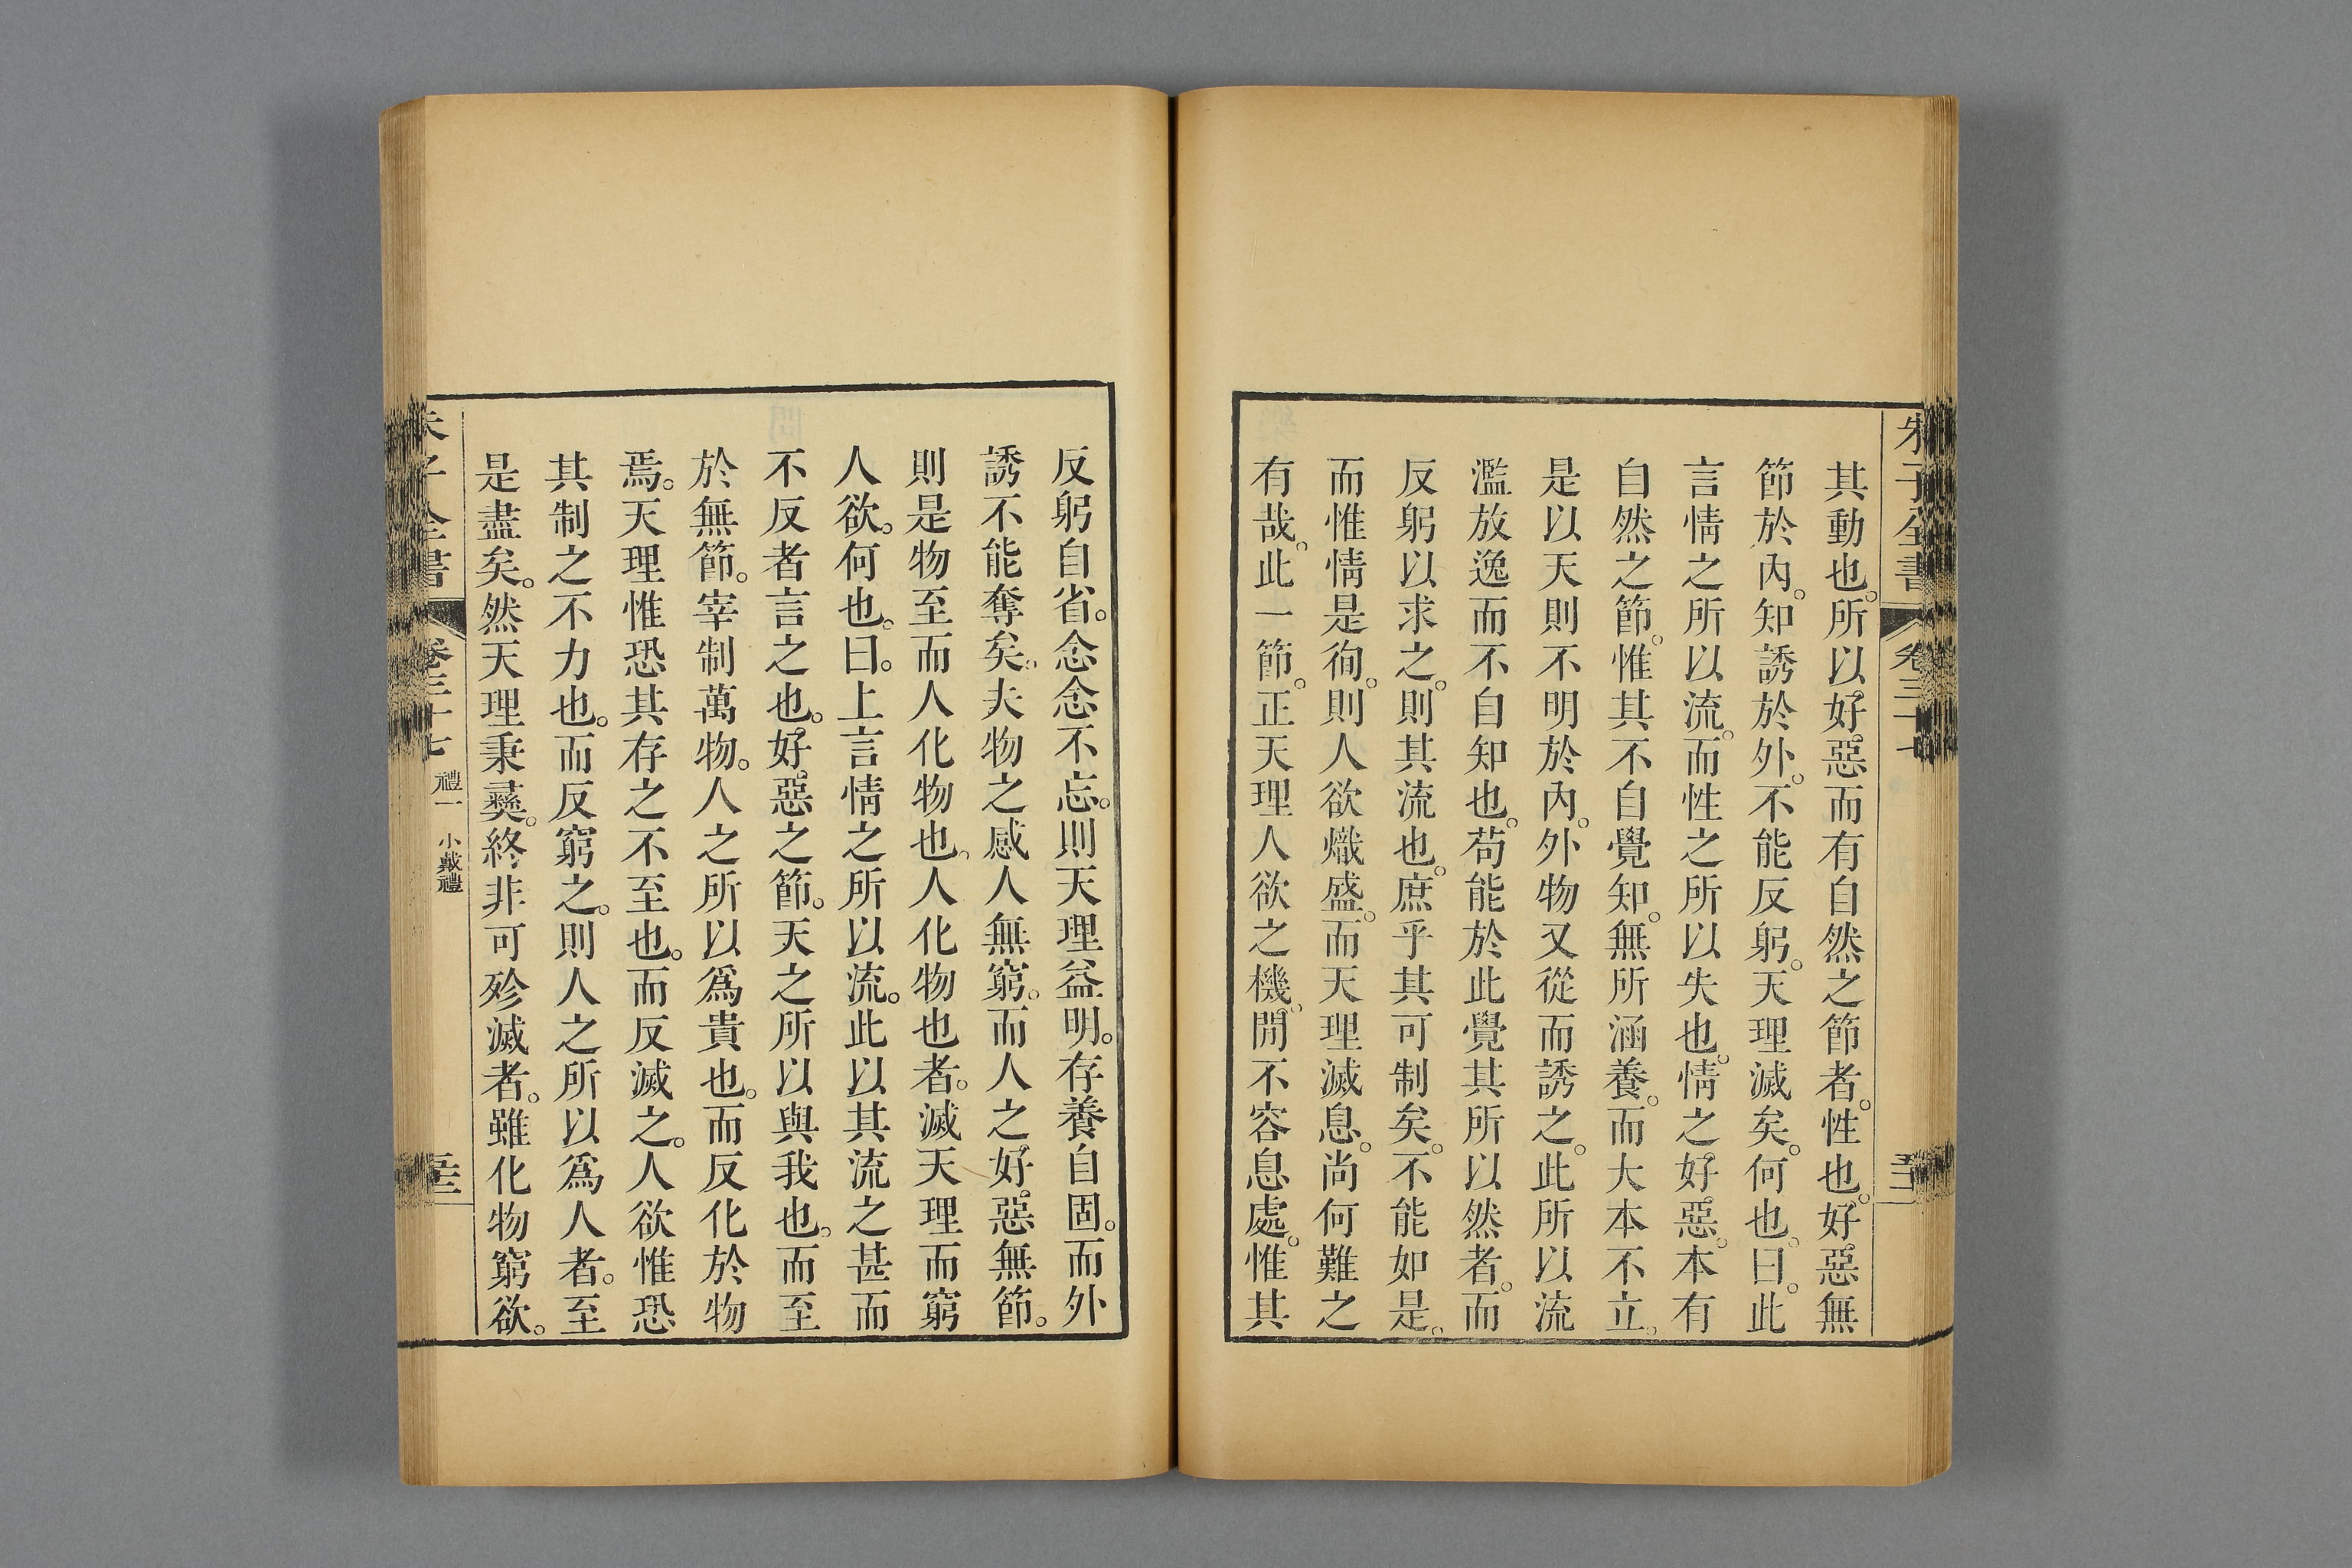 朱子全書
卷三十七
其動也。所以好惡而有自然之節者。性也。好惡無
節於內。知誘於外。不能反躬。天理滅矣。何也。曰。此
言情之所以流。而性之所以失也。情之好惡。本有
自然之節。惟其不自覺知。無所涵養。而大本不立。
是以天則不明於內。外物又從而誘之。此所以流
濫放逸而不自知也。苟能於此覺其所以然者。而
反躬以求之。則其流也。庶乎其可制矣。不能如是。
而惟情是徇。則人欲熾盛。而天理滅息。尚何難之
有哉。此一節。正天理人欲之機。閒不容息處。惟其
反躬自省。念念不忘。則天理益明。存養自固。而外
誘不能奪矣。夫物之感人無窮。而人之好惡無節。
則是物至而人化物也。人化物也者。滅天理而窮
人欲。何也。曰。上言情之所以流。此以其流之甚而
不反者言之也。好惡之節。天之所以與我也。而至
於無節。宰制萬物。人之所以爲貴也。而反化於物
焉。天理惟恐其存之不至也。而反滅之。人欲惟恐
其制之不力也。而反窮之。則人之所以爲人者。至
是盡矣。然天理秉彝。終非可殄滅者。雖化物窮欲。
朱子全書
卷三十七
禮一
小戴禮